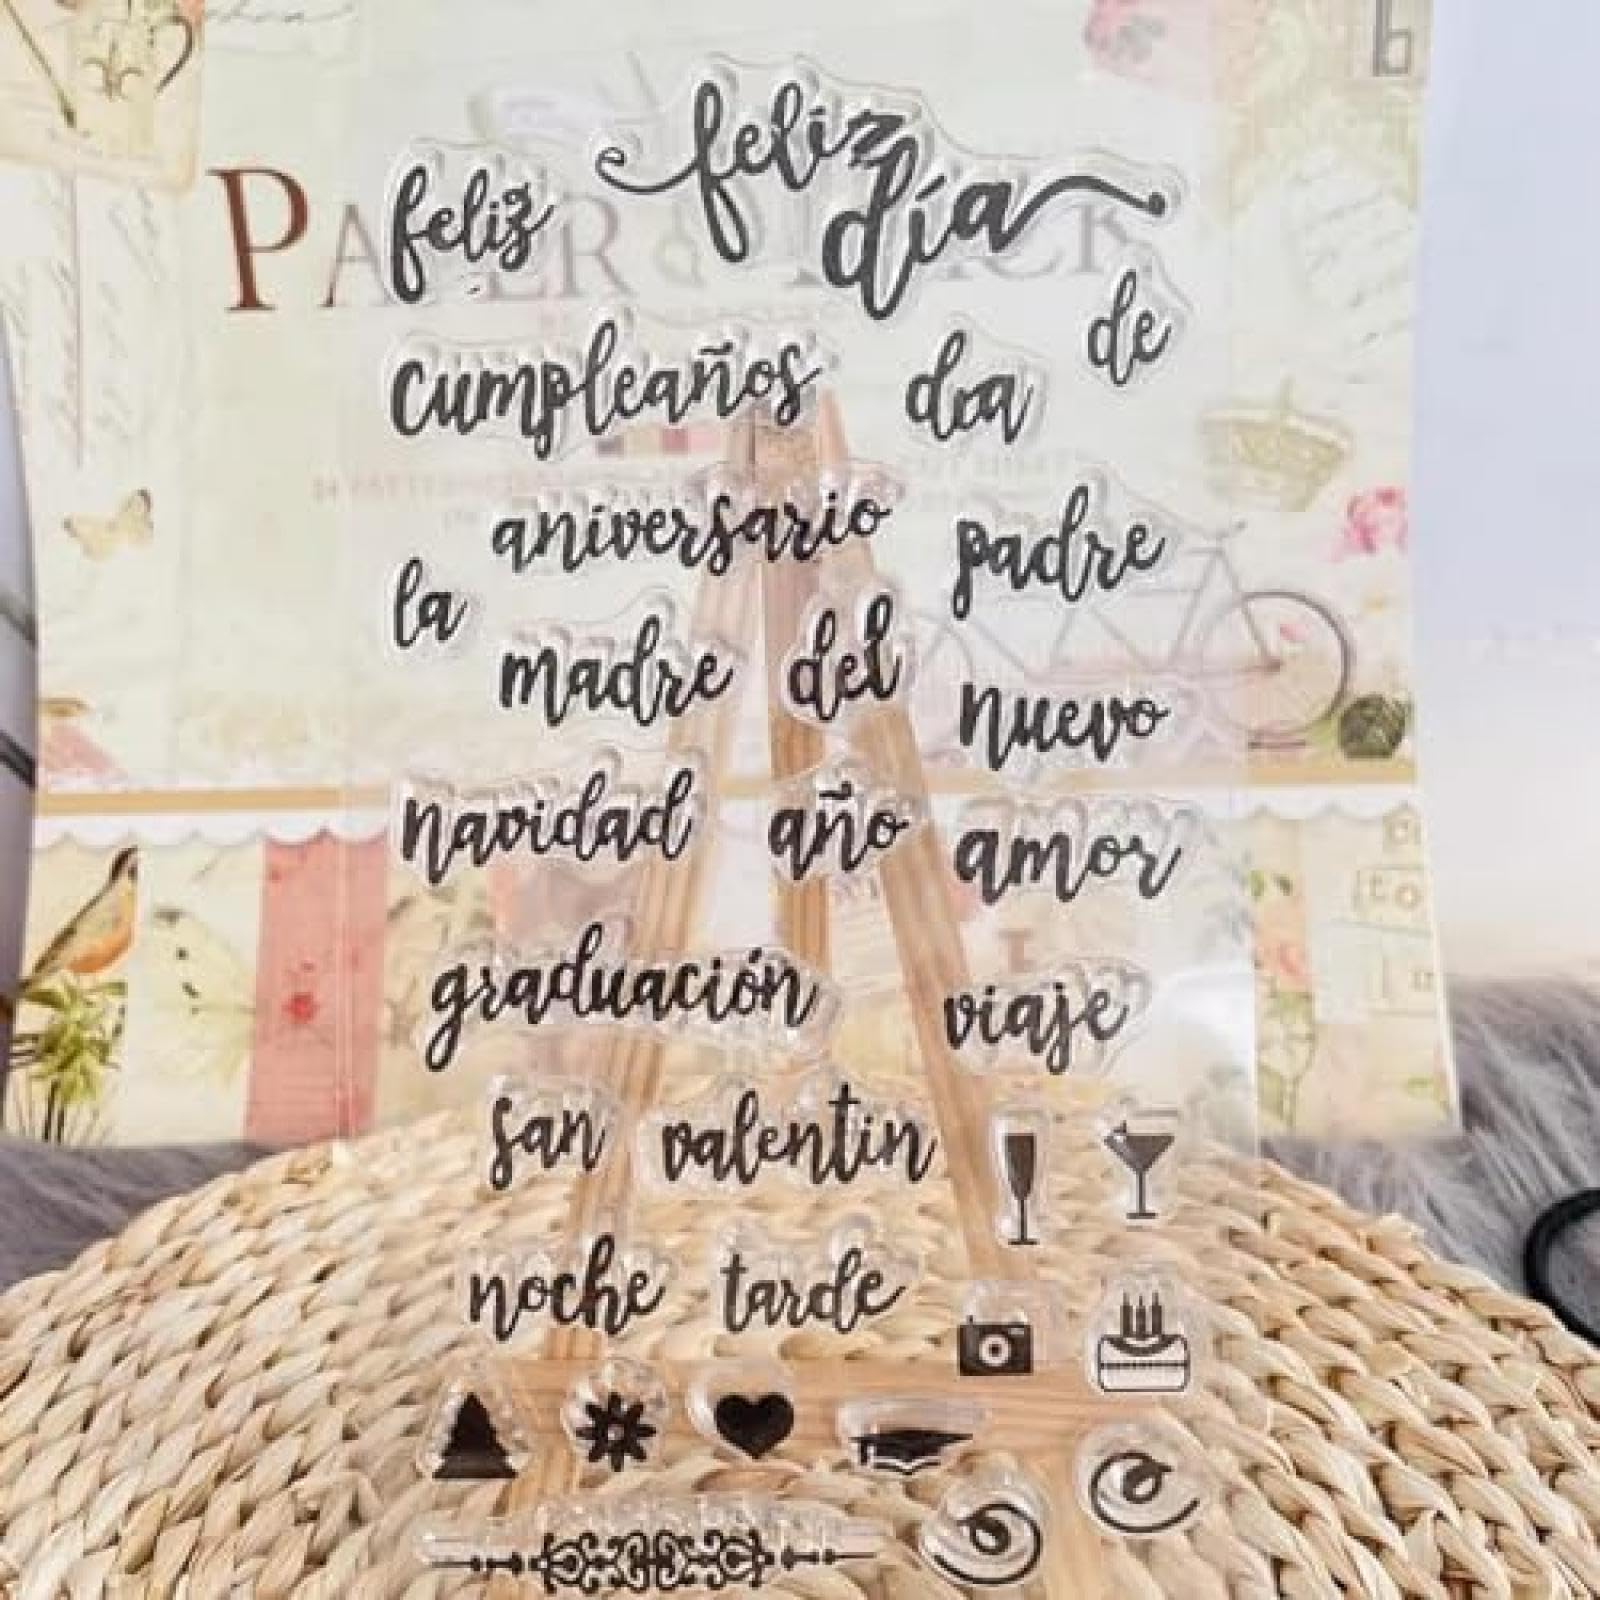 feliz
feliz
día
PAPER PACK
de
cumpleaños
dıa
aniversario
padre
la
madre
del
nuevo
navidad
año
amor
graduación
viaje
san
valentin
noche
tarde